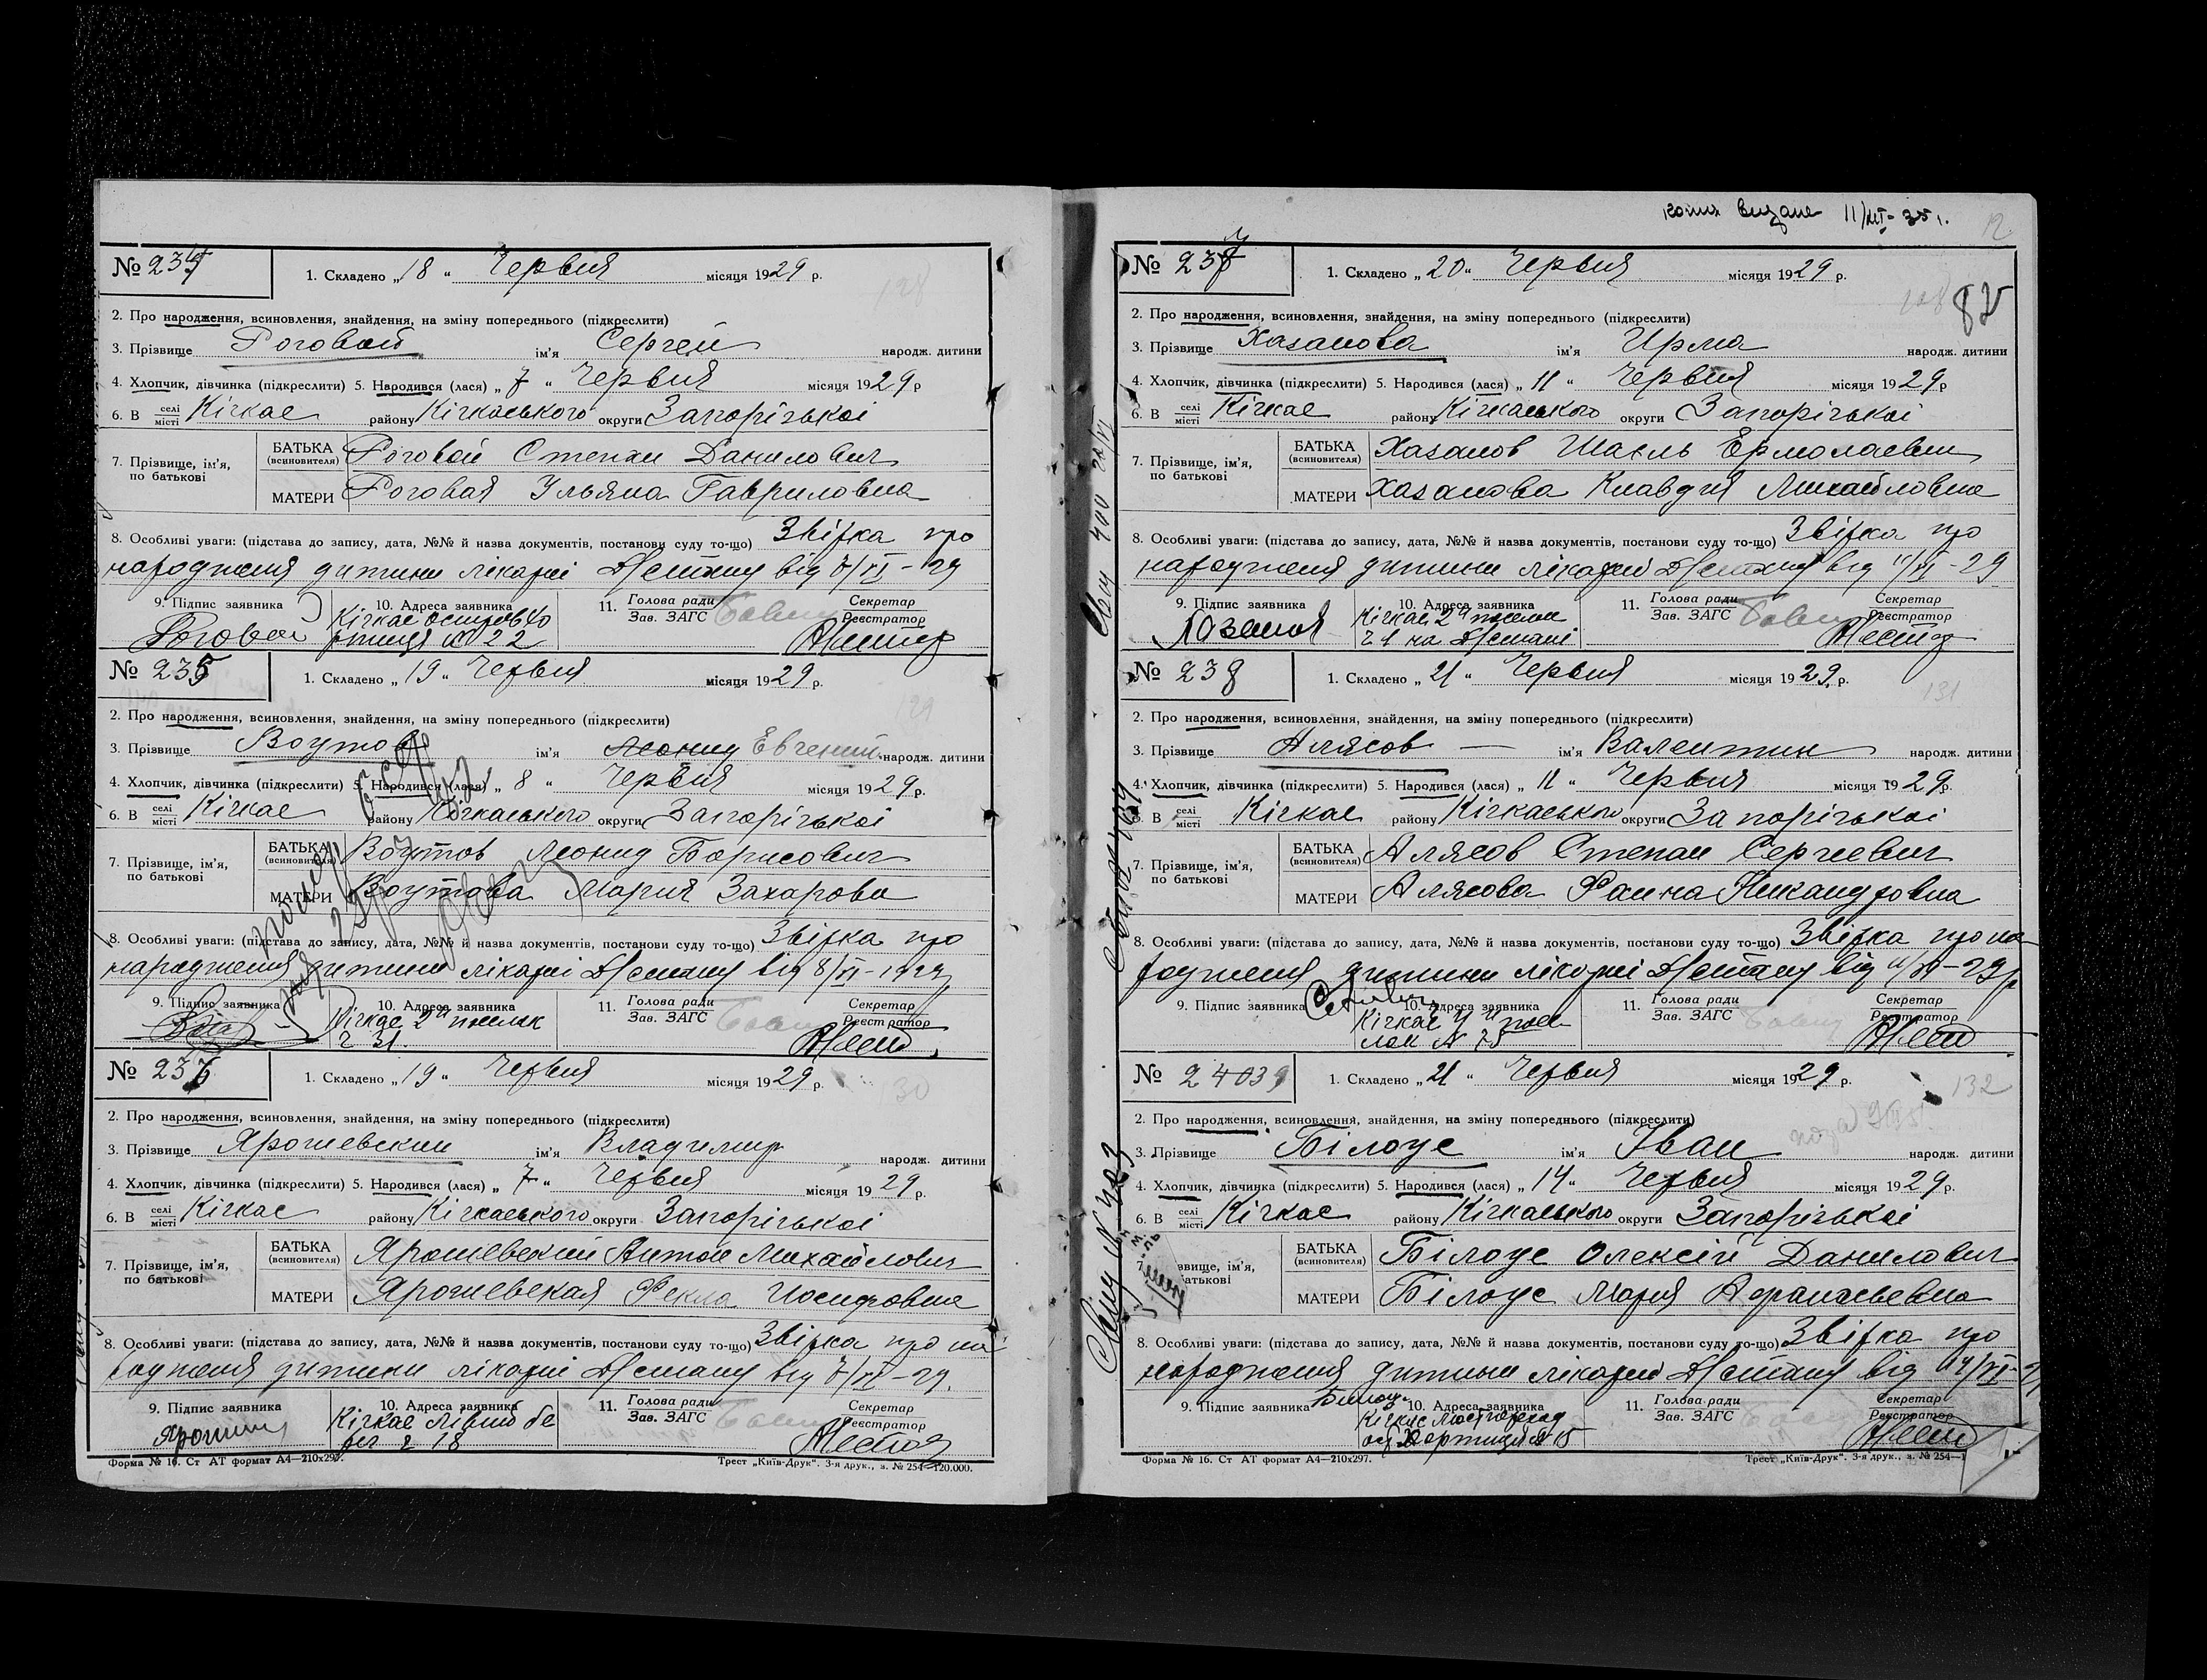 № 234
1. Складено „18“ Червня місяця 1929 р.
2. Про народження, всиновлення, знайдення, на зміну попереднього (підкреслити)
3. Прізвище Роговой ім'я Сергей народж. дитини
4. Хлопчик, дівчинка (підкреслити) 5. Народився (лася) „7“ Червня місяця 1929 р
6. В селі місті Кічкас району Кічкаського округи Запорізької
7. Прізвище, ім'я, по батькові
БАТЬКА (всиновителя) Роговой Степан Данилович
МАТЕРИ Роговая Ульяна Гавриловна
8. Особливі уваги: (підстава до запису, дата, №№ й назва документів, постанови суду то-що) Звірка про
народження дитини лікарні Дністану від 7/VI-29
9. Підпис заявника Роговой
10. Адреса заявника Кічкас Остров Хо
ртиця № 22
11. Голова ради Зав. ЗАГС
Секретар Реєстратор
№ 235
1. Складено „19“ Червня місяця 1929 р.
2. Про народження, всиновлення, знайдення, на зміну попереднього (підкреслити)
3. Прізвище Воутов ім'я Леонид Евгений народж. дитини
4. Хлопчик, дівчинка (підкреслити) 5. Народився (лася) „8“ Червня місяця 1929 р.
6. В селі місті Кічкас району Кічкаського округи Запорізької
7. Прізвище, ім'я, по батькові
БАТЬКА (всиновителя) Воутов Леонид Борисович
МАТЕРИ Воутова Мария Захарова
8. Особливі уваги: (підстава до запису, дата, №№ й назва документів, постанови суду то-що) Звірка про
народження дитини лікарні Дністану від 8/VI-1929
9. Підпис заявника
10. Адреса заявника Кічкас 2й поселок
2 31.
11. Голова ради Зав. ЗАГС
Секретар Реєстратор
№ 236
1. Складено „19“ Червня місяця 1929 р.
2. Про народження, всиновлення, знайдення, на зміну попереднього (підкреслити)
3. Прізвище Ярошевский ім'я Владимир народж. дитини
4. Хлопчик, дівчинка (підкреслити) 5. Народився (лася) „7“ Червня місяця 1929 р.
6. В селі місті Кічкас району Кічкаського округи Запорізької
7. Прізвище, ім'я, по батькові
БАТЬКА (всиновителя) Ярошевский Антон Михайлович
МАТЕРИ Ярошевская Фекла Иосифовна
8. Особливі уваги: (підстава до запису, дата, №№ й назва документів, постанови суду то-що) Звірка про на
родження дитини лікарні Дністану від 7/VI-29.
9. Підпис заявника
10. Адреса заявника Кічкас Лівий бе
рег 2 18
11. Голова ради Зав. ЗАГС
Секретар Реєстратор
Форма № 16. Ст АТ формат А4—210х297.
Трест „Київ-Друк“. 3-я друк., з. № 254—120.000.
копия видана 11/XII-35 г.
12
82
№ 237
1. Складено „20“ Червня місяця 1929 р.
2. Про народження, всиновлення, знайдення, на зміну попереднього (підкреслити)
3. Прізвище Хазанова ім'я Ирма народж. дитини
4. Хлопчик, дівчинка (підкреслити) 5. Народився (лася) „11“ Червня місяця 1929 р
6. В селі місті Кічкас району Кічкаського округи Запорізької
7. Прізвище, ім'я, по батькові
БАТЬКА (всиновителя) Хазанов Шаєль Ермолаевич
МАТЕРИ Хазанова Клавдия Михайловна
8. Особливі уваги: (підстава до запису, дата, №№ й назва документів, постанови суду то-що) Звірка про
народження дитини лікарні Дністану від 11/VI-29
9. Підпис заявника
10. Адреса заявника Кічкас 2й поселок
11. Голова ради Зав. ЗАГС
Секретар Реєстратор
№ 238
1. Складено „21“ Червня місяця 1929 р.
131
2. Про народження, всиновлення, знайдення, на зміну попереднього (підкреслити)
3. Прізвище Алясов — ім'я Валентин народж. дитини
4. Хлопчик, дівчинка (підкреслити) 5. Народився (лася) „11“ Червня місяця 1929 р.
6. В селі місті Кічкас району Кічкаського округи Запорізької
7. Прізвище, ім'я, по батькові
БАТЬКА (всиновителя) Алясов Степан Сергеевич
МАТЕРИ Алясова Фаина Никандровна
8. Особливі уваги: (підстава до запису, дата, №№ й назва документів, постанови суду то-що) Звірка про на
родження дитини лікарні Дністану від 11/VI-29р
9. Підпис заявника
10. Адреса заявника Кічкас 4й посе
лок № 75
11. Голова ради Зав. ЗАГС
Секретар Реєстратор
№ 24039
1. Складено „21“ Червня місяця 1929 р.
132
2. Про народження, всиновлення, знайдення, на зміну попереднього (підкреслити)
3. Прізвище Білоус ім'я Іван народж. дитини
4. Хлопчик, дівчинка (підкреслити) 5. Народився (лася) „14“ Червня місяця 1929 р.
6. В селі місті Кічкас району Кічкаського округи Запорізької
7. Прізвище, ім'я, по батькові
БАТЬКА (всиновителя) Білоус Олексій Данилович
МАТЕРИ Білоус Мария Афанасьевна
8. Особливі уваги: (підстава до запису, дата, №№ й назва документів, постанови суду то-що) Звірка про
народження дитини лікарні Дністану від 14/VI-29
9. Підпис заявника Білоус
10. Адреса заявника Кічкас Мостопереход
ост Хортиця № 15
11. Голова ради Зав. ЗАГС
Секретар Реєстратор
Форма № 16. Ст АТ формат А4—210х297.
Трест „Київ-Друк“. 3-я друк., з. № 254—1